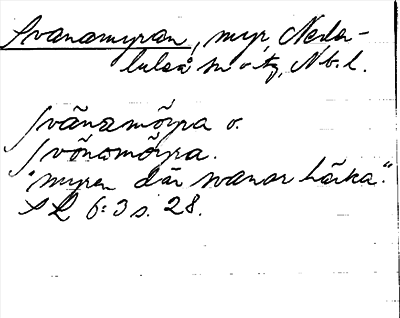 Svanamyran, myr, Neder-
luleå sn o. tg, Nb. l.
svānamōyra o.
svōnamōyra.
"myren där svanar häcka."
SL 6:3 s. 28.